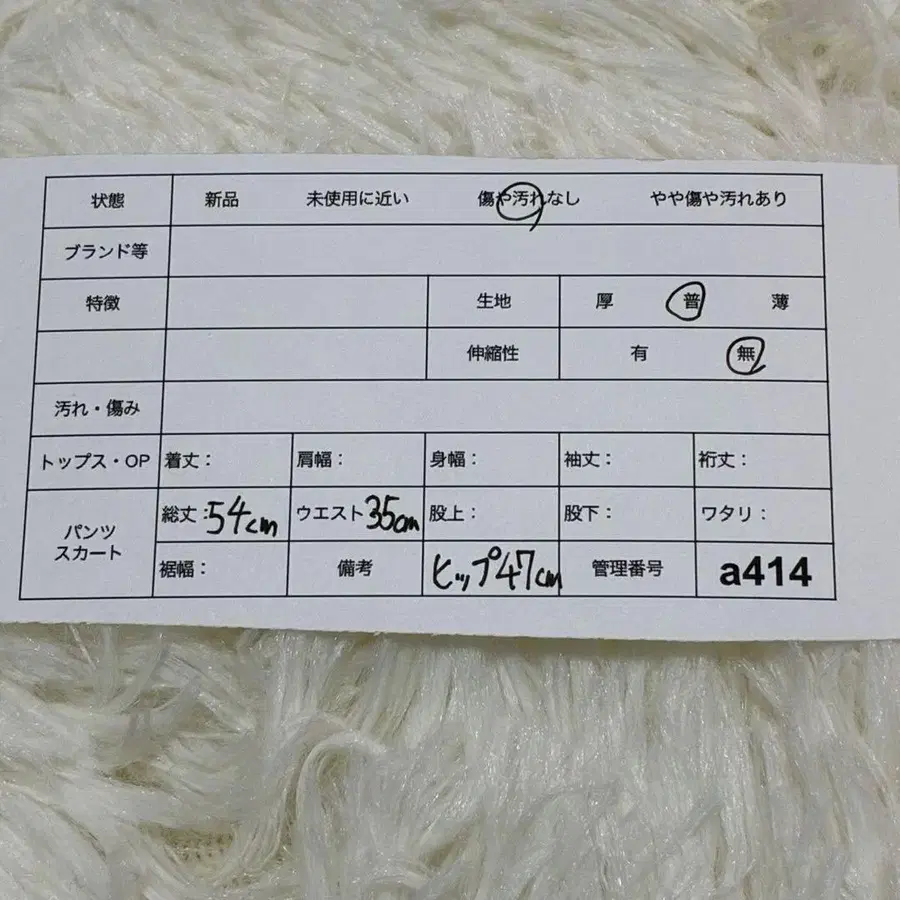 状態 新品 未使用に近い 傷や汚れなし やや傷や汚れあり
ブランド等
特徴 生地 厚 普 薄
伸縮性 有 無
汚れ・傷み
トップス・OP 着丈: 肩幅: 身幅: 袖丈: 裄丈:
パンツ スカート 総丈:54cm ウエスト35cm 股上: 股下: ワタリ:
裾幅: 備考 ヒップ47cm 管理番号 a414